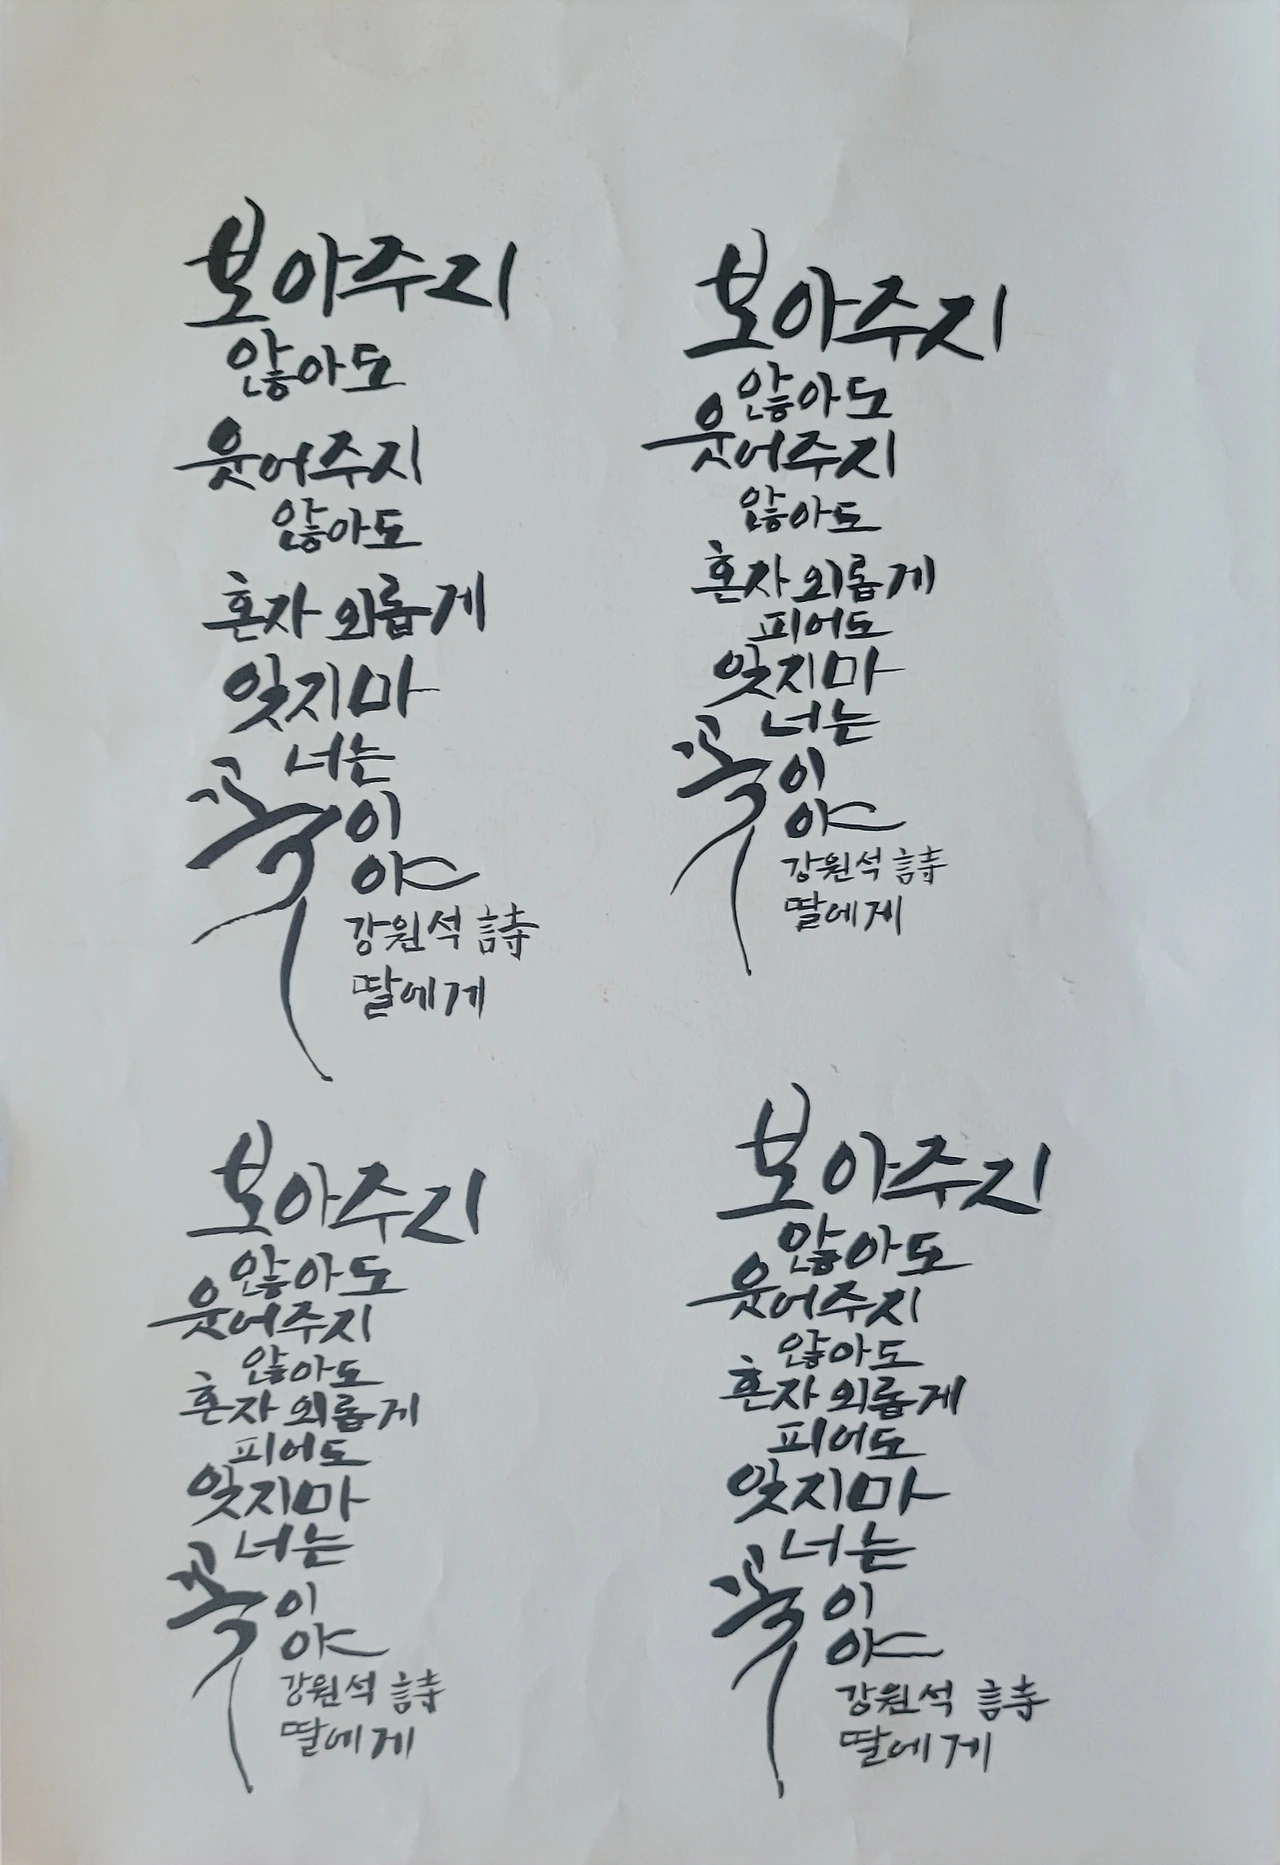 보아주지
않아도
웃어주지
않아도
혼자 외롭게
잊지마
너는
꽃이
야
강원석 詩
딸에게
보아주지
않아도
웃어주지
않아도
혼자 외롭게
피어도
잊지마
너는
꽃이
야
강원석 詩
딸에게
보아주지
않아도
웃어주지
않아도
혼자 외롭게
피어도
잊지마
너는
꽃이
야
강원석 詩
딸에게
보아주지
않아도
웃어주지
않아도
혼자 외롭게
피어도
잊지마
너는
꽃이
야
강원석 詩
딸에게